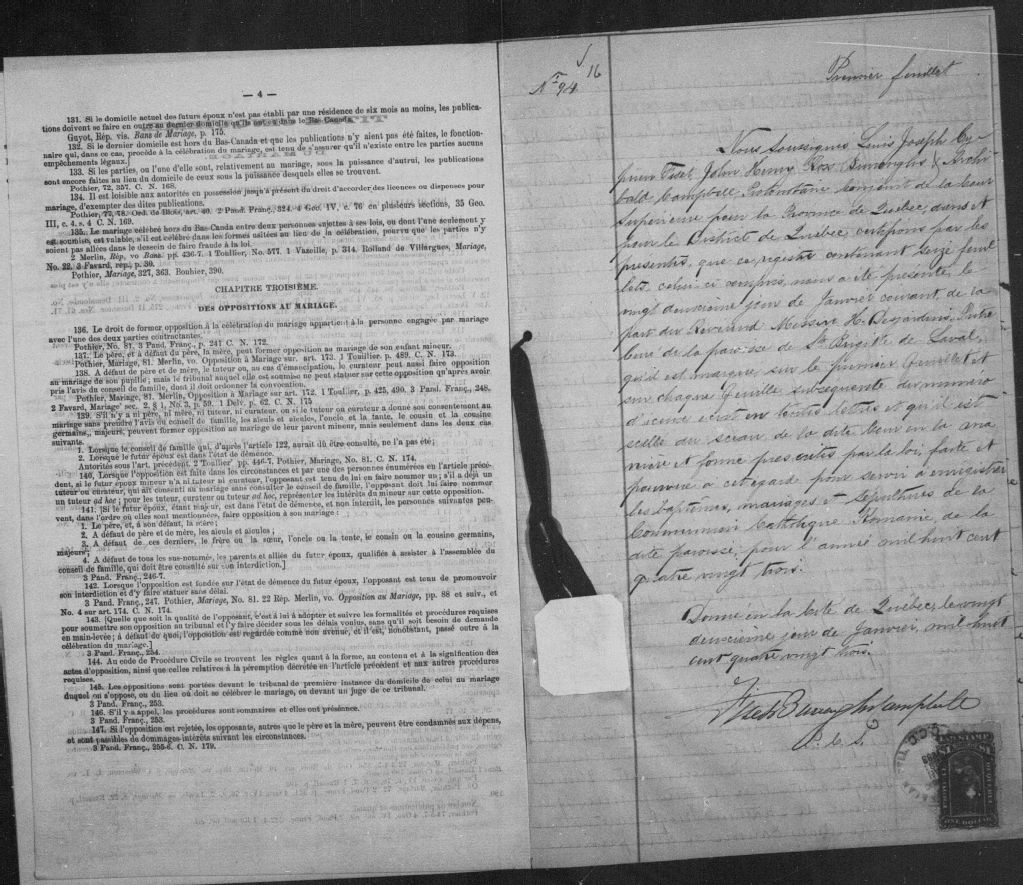 — 4 —
131. Si le domicile actuel des futurs époux n'est pas établi par une résidence de six mois au moins, les publica-
tions doivent se faire en outre au dernier domicile qu'ils ont eu dans le Bas-Canada.
Guyot, Rép. vis. Bans de Mariage, p. 175.
132. Si le dernier domicile est hors du Bas-Canada et que les publications n'y aient pas été faites, le fonction-
naire qui, dans ce cas, procède à la célébration du mariage, est tenu de s'assurer qu'il n'existe entre les parties aucuns
empêchements légaux.]
133. Si les parties, ou l'une d'elle sont, relativement au mariage, sous la puissance d'autrui, les publications
sont encore faites au lieu du domicile de ceux sous la puissance desquels elles se trouvent.
Pothier, 72, 357. C. N. 168.
134. Il est loisible aux autorités en possession jusqu'à présent du droit d'accorder des licences ou dispenses pour
mariage, d'exempter des dites publications.
Pothier, 77, 78. Ord. de Blois, art. 40. 2 Pand. Franç., 324. 4 Geo. IV, c. 76 en plusieurs sections, 35 Geo.
III, c. 4, s. 4 C. N. 169.
135. Le mariage célébré hors du Bas-Canada entre deux personnes sujettes à ses lois, ou dont l'une seulement y
est soumise, est valable, s'il est célébré dans les formes usitées au lieu de la célébration, pourvu que les parties n'y
soient pas allées dans le dessein de faire fraude à la loi.
2 Merlin, Rép. vo Bans. pp. 436-7. 1 Toullier, No. 577. 1 Vazeille, p. 314 Rolland de Villargues, Mariage,
No. 22. 3 Favard, rép., p. 30.
Pothier, Mariage, 327, 363. Bouhier, 390.
CHAPITRE TROISIÈME.
DES OPPOSITIONS AU MARIAGE.
136. Le droit de former opposition à la célébration du mariage appartient à la personne engagée par mariage
avec l'une des deux parties contractantes.
Pothier, No. 81. 3 Pand. Franç., p. 241 C. N. 172.
137. Le père, et à défaut du père, la mère, peut former opposition au mariage de son enfant mineur.
Pothier, Mariage, 81. Merlin, vo. Opposition à Mariage sur. art. 173. 1 Touillier. p. 489. C. N. 173.
138. A défaut de père et de mère, le tuteur ou, au cas d'émancipation, le curateur peut aussi faire opposition
au mariage de son pupille; mais le tribunal auquel elle est soumise ne peut statuer sur cette opposition qu'après avoir
pris l'avis du conseil de famille, dont il doit ordonner la convocation.
Pothier, Mariage, 81. Merlin, Opposition à Mariage sur art. 172. 1 Toullier, p. 425, 490. 3 Pand. Franç., 248.
2 Favard, Mariage sec. 2. § 1, No. 3, p. 59. 1 Delv. p. 62. C. N. 175
139. S'il n'y a ni père, ni mère, ni tuteur, ni curateur, ou si le tuteur ou curateur a donné son consentement au
mariage sans prendre l'avis du conseil de famille, les aïeuls et aïeules, l'oncle et la tante, le cousin et la cousine
germains, majeurs, peuvent former opposition au mariage de leur parent mineur, mais seulement dans les deux cas
suivants.
1. Lorsque le conseil de famille qui, d'après l'article 122, aurait dû être consulté, ne l'a pas été;
2. Lorsque le futur époux est dans l'état de démence.
Autorités sous l'art. précédent. 2 Toullier pp. 446-7. Pothier, Mariage, No. 81. C. N. 174.
140. Lorsque l'opposition est faite dans les circonstances et par une des personnes énumérées en l'article précé-
dent, si le futur époux mineur n'a ni tuteur ni curateur, l'opposant est tenu de lui en faire nommer un; s'il a déjà un
tuteur ou curateur, qui ait consenti au mariage sans consulter le conseil de famille, l'opposant doit lui faire nommer
un tuteur ad hoc; pour les tuteur, curateur ou tuteur ad hoc, représenter les intérêts du mineur sur cette opposition.
141. [Si le futur époux, étant majeur, est dans l'état de démence, et non interdit, les personnes suivantes peu-
vent, dans l'ordre où elles sont mentionnées, faire opposition à son mariage:
1. Le père, et, à son défaut, la mère;
2. A défaut de père et de mère, les aïeuls et aïeules;
3. A défaut de ces derniers, le frère ou la sœur, l'oncle ou la tante, le cousin ou la cousine germains,
majeurs;
4. A défaut de tous les sus-nommés, les parents et alliés du futur époux, qualifiés à assister à l'assemblée du
conseil de famille, qui doit être consulté sur son interdiction.]
3 Pand. Franç., 246-7.
142. Lorsque l'opposition est fondée sur l'état de démence du futur époux, l'opposant est tenu de promouvoir
son interdiction et d'y faire statuer sans délai.
3 Pand. Franç., 247. Pothier, Mariage, No. 81. 22 Rép. Merlin, vo. Opposition au Mariage, pp. 88 et suiv., et
No. 4 sur art. 174. C. N. 174.
143. [Quelle que soit la qualité de l'opposant, c'est à lui à adopter et suivre les formalités et procédures requises
pour soumettre son opposition au tribunal et l'y faire décider sous les délais voulus, sans qu'il soit besoin de demande
en main-levée; à défaut de quoi, l'opposition est regardée comme non avenue, et il est, nonobstant, passé outre à la
célébration du mariage.]
3 Pand. Franç., 254.
144. Au code de Procédure Civile se trouvent les règles quant à la forme, au contenu et à la signification des
actes d'opposition, ainsi que celles relatives à la péremption décrétée en l'article précédent et aux autres procédures
requises.
145. Les oppositions sont portées devant le tribunal de première instance du domicile de celui au mariage
duquel on s'oppose, ou du lieu où doit se célébrer le mariage, ou devant un juge de ce tribunal.
3 Pand. Franç., 253.
146. S'il y a appel, les procédures sont sommaires et elles ont préséance.
3 Pand. Franç., 253.
147. Si l'opposition est rejetée, les opposants, autres que le père et la mère, peuvent être condamnés aux dépens,
et sont passibles de dommages-intérêts suivant les circonstances.
3 Pand. Franç., 255-6. C. N. 179.
16
No 94
Premier feuillet
Nous Soussignés Louis Joseph Cy-
prien Fiset, John Henry Ross Burroughs & Archi-
bald Campbell, Protonotaire conjoint de la Cour
supérieure pour la Province de Québec, dans et
pour le District de Québec certifions par les
présentes, que ce registre contenant seize feuil
lets, celui-ci compris, nous a été présenté, le
vingt deuxième jour de Janvier courant, de la
part du Révérend Messire H. Desjardins, Prêtre
curé de la paroisse de Ste Brigitte de Laval,
qu'il est marqué sur le premier feuillet et
sur chaque feuille subséquente du numéro
d'icelui écrit en toutes lettres et qu'il est
scellé du sceau de la dite Cour en la ma
nière et forme prescrites par la loi, faite et
pourvue à cet égard pour servir à enregistrer
les baptêmes, mariages et sépultures de la
Communion Catholique Romaine, de la
dite paroisse, pour l'année mil huit cent
quatre vingt trois.
Donné en la Cité de Québec, le vingt
deuxième jour de Janvier, mil huit
cent quatre vingt trois.
Fiset Burroughs Campbell
P. C. S.
LAW STAMP
$1
$1
ONE DOLLAR